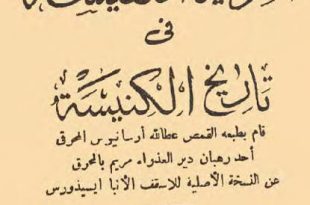 فى
تاريخ الكنيسة
قام بطبعه القمص عطالله أرسانيوس المحرقى
أحد رهبان دير العذراء مريم بالمحرق
عن النسخة الأصلية للأسقف الأنبا ايسيذورس